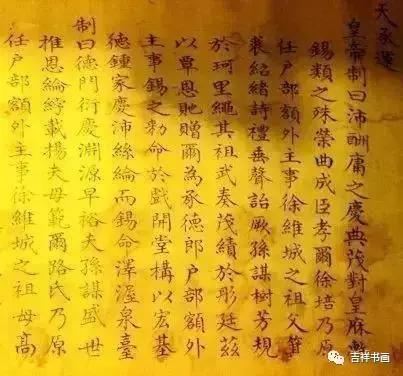 天承運
皇帝制曰沛酬庸之慶典茂對皇庥敷
錫類之殊榮曲成臣孝爾徐培乃原
任戶部額外主事徐維城之祖父箕
裘紹緒詩禮垂聲詒厥孫謀樹芳規
於珂里繩其祖武奏茂績於彤廷茲
以覃恩貤贈爾為承德郎戶部額外
主事錫之勑命於戲開堂構以宏基
德鍾家慶沛絲綸而錫命澤渥泉臺
制曰德門衍慶淵源早裕夫孫謀盛世
推恩綸綍載揚夫母範爾路氏乃原
任戶部額外主事徐維城之祖母髙
吉祥书画